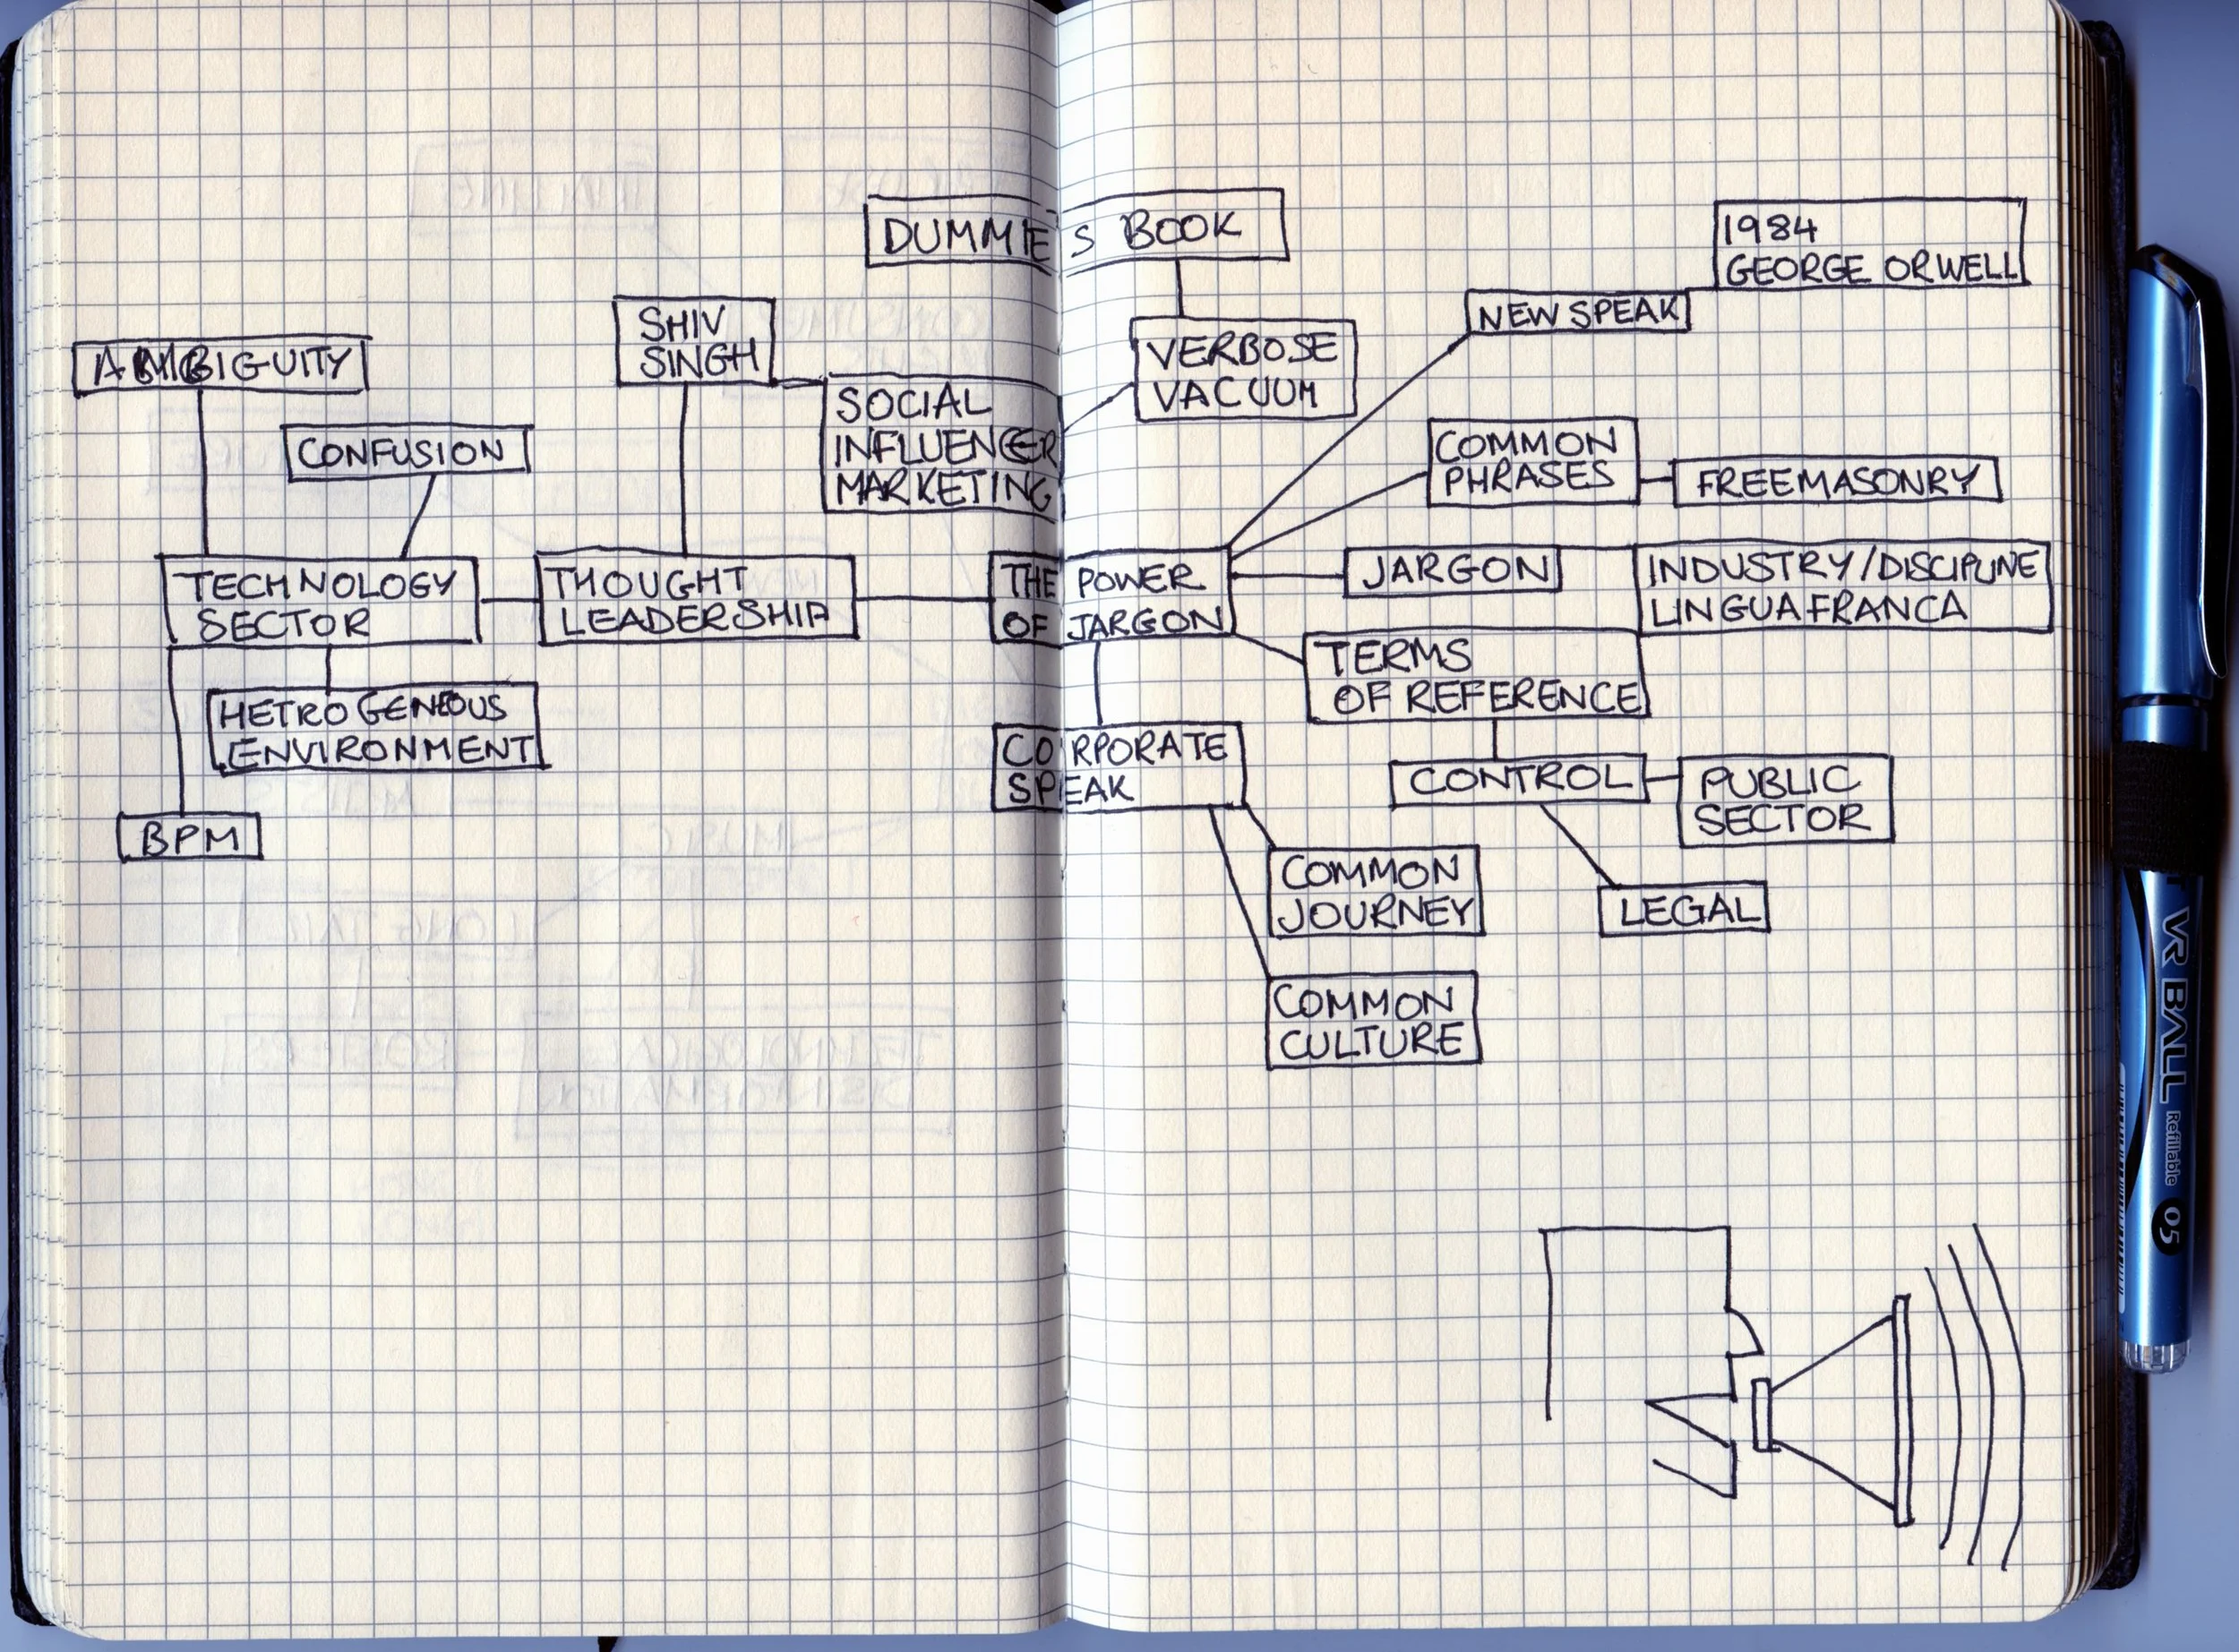 DUMMIES BOOK
1984
GEORGE ORWELL
NEWSPEAK
SHIV
SINGH
VERBOSE
VACUUM
AMBIGUITY
SOCIAL
INFLUENCER
MARKETING
CONFUSION
COMMON
PHRASES
FREEMASONRY
TECHNOLOGY
SECTOR
THOUGHT
LEADERSHIP
THE POWER
OF JARGON
JARGON
INDUSTRY/DISCIPLINE
LINGUA FRANCA
TERMS
OF REFERENCE
HETROGENEOUS
ENVIRONMENT
CORPORATE
SPEAK
CONTROL
PUBLIC
SECTOR
BPM
COMMON
JOURNEY
LEGAL
COMMON
CULTURE
VR BALL Refillable 05